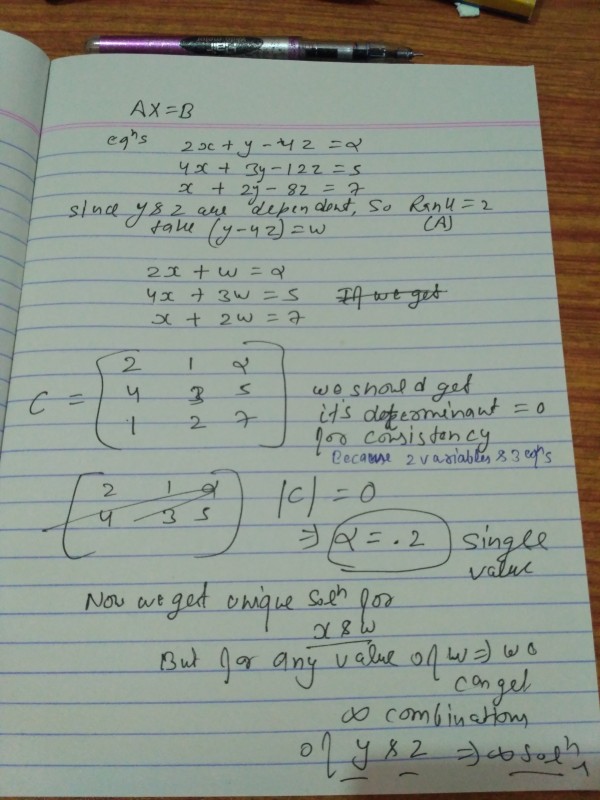 AX=B
eqns 2x + y - 4z = α
4x + 3y - 12z = 5
x + 2y - 8z = 7
since y & z are dependent, so Rank = 2
take (y-4z) = w (A)
2x + w = α
4x + 3w = 5 If we get
x + 2w = 7
2 1 α
4 3 5 we should get
C = it's determinant = 0
1 2 7 for consistancy
Because 2 variables & 3 eqns
2 1 α |C| = 0
4 3 5
⇒ α = .2 single
value
Now we get unique soln for
x & w
But for any value of w ⇒ we
can get
∞ combinations
of y & z ⇒ ∞ soln